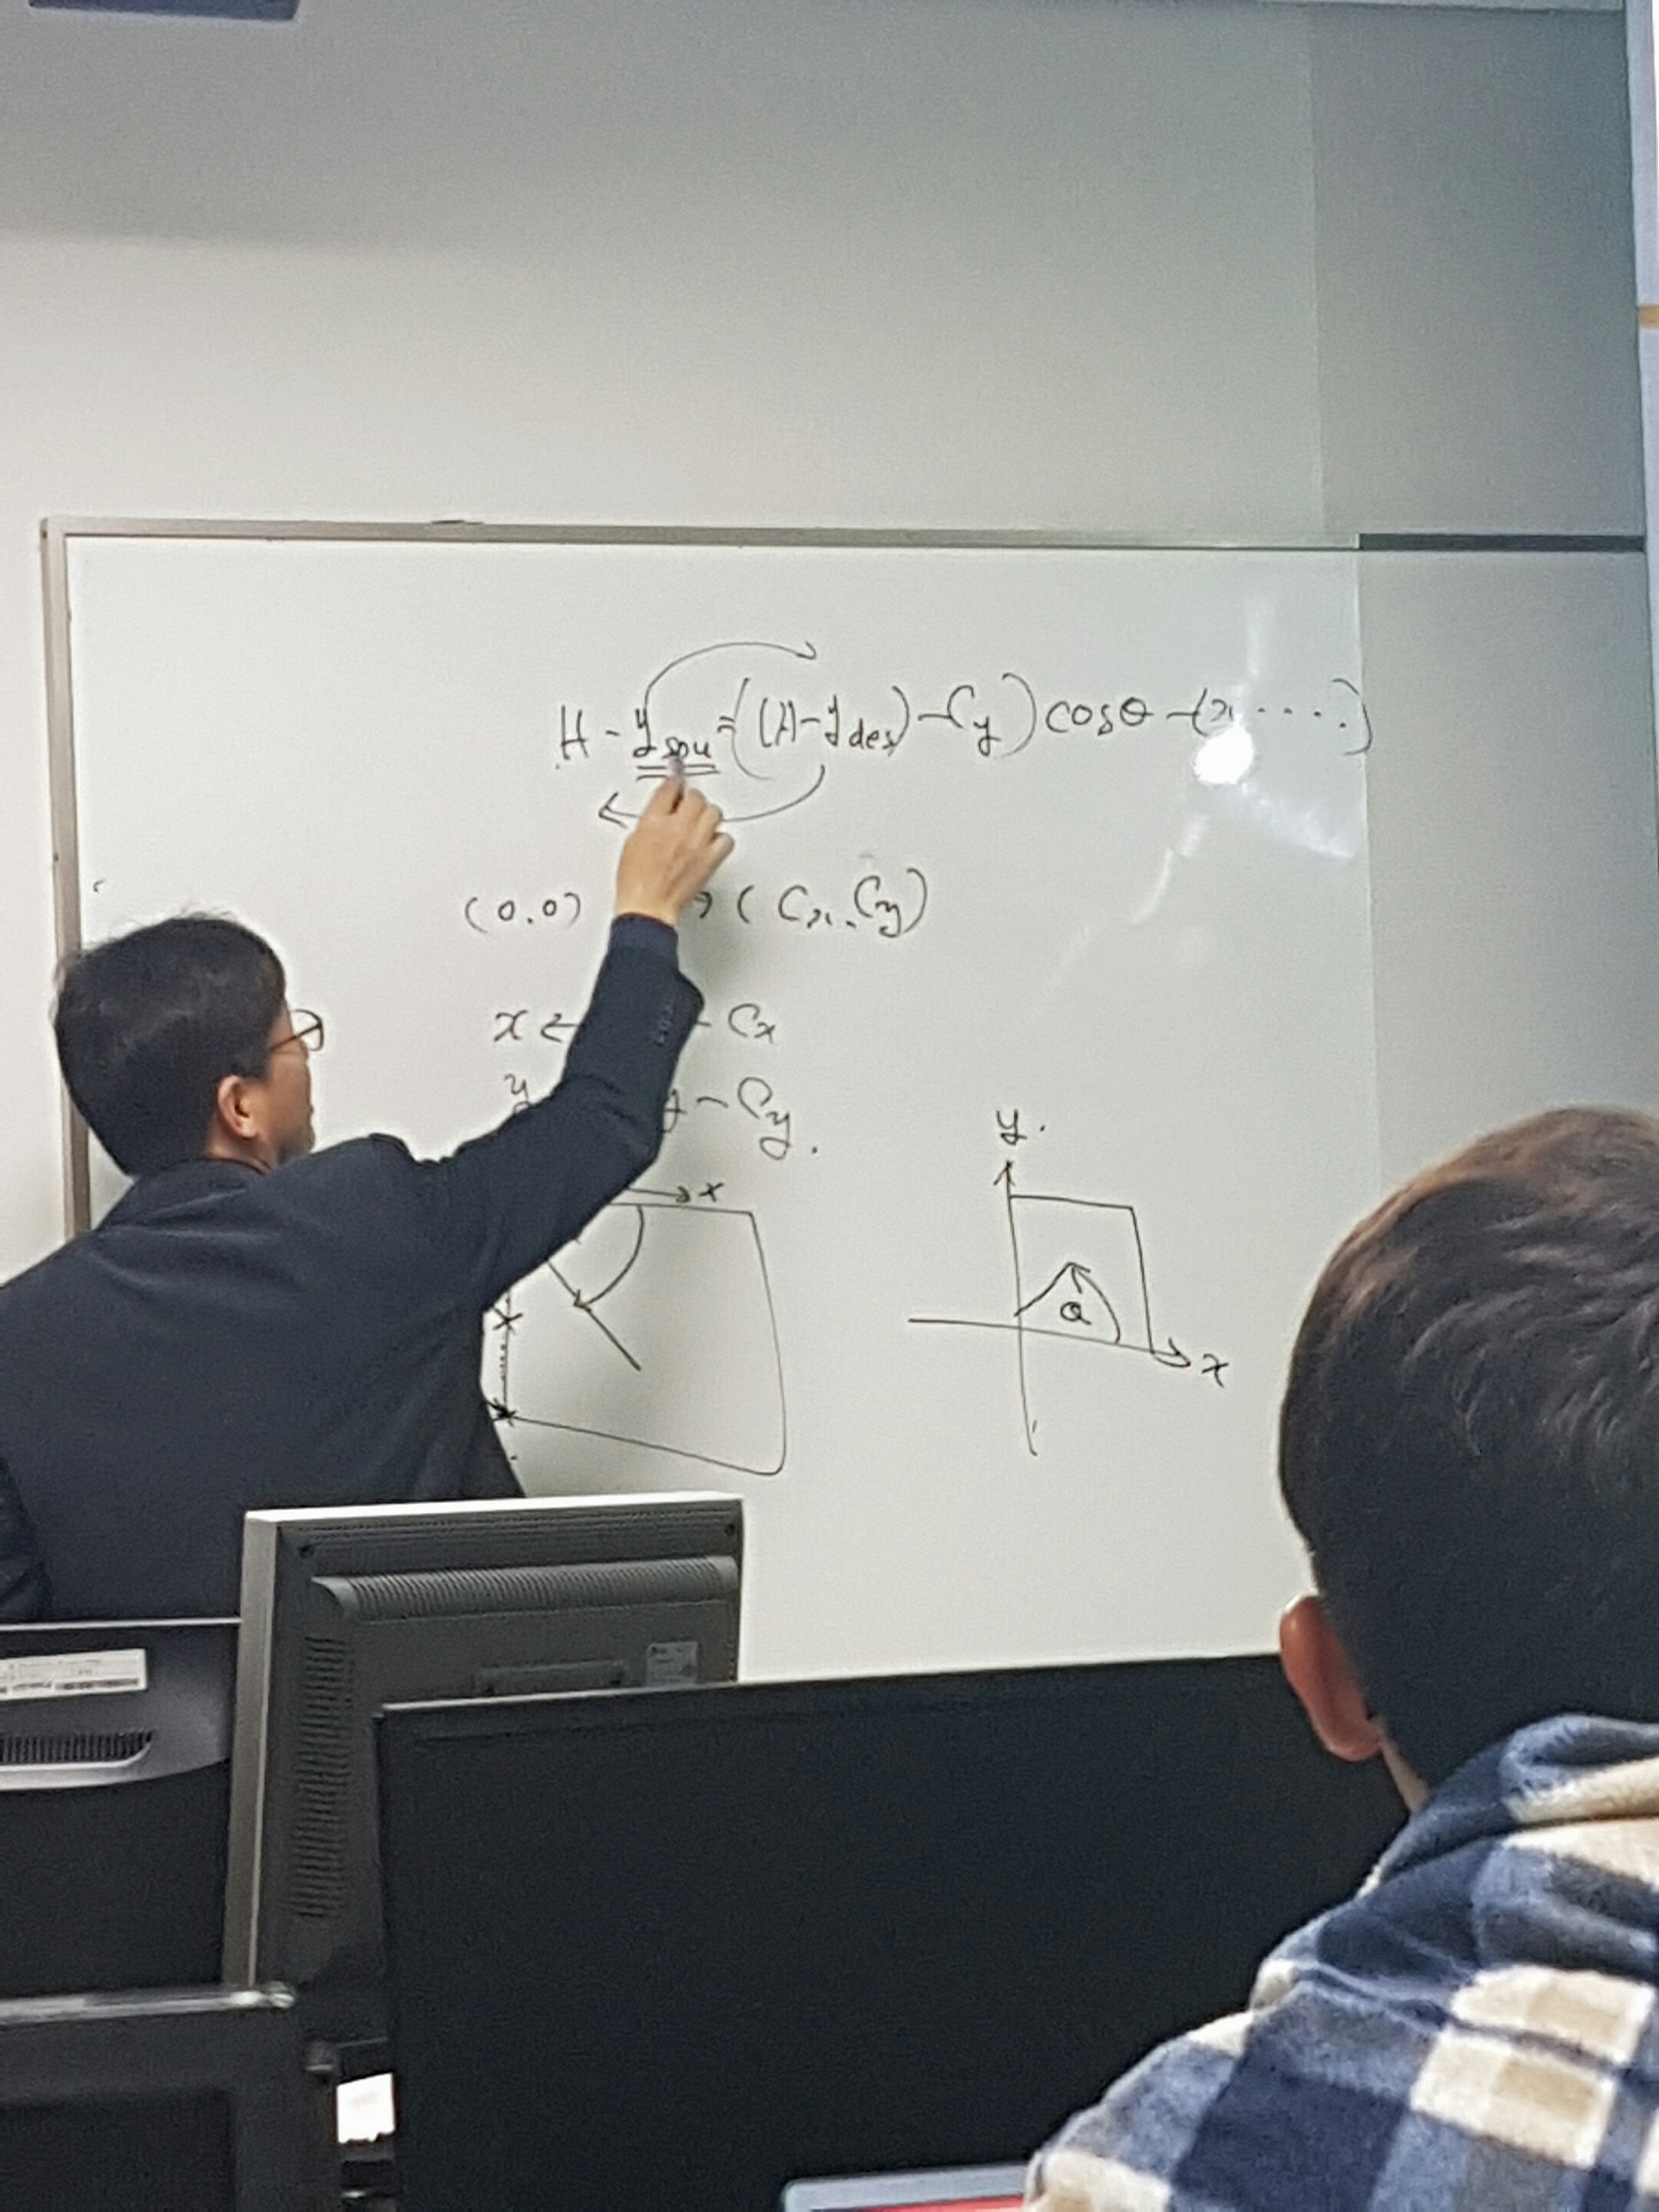 H - y_sou = ((H - y_des) - C_y) cosθ - (x ....)
(0.0) → (C_x. C_y)
x ← - C_x
y y - C_y.
x
y.
θ
x